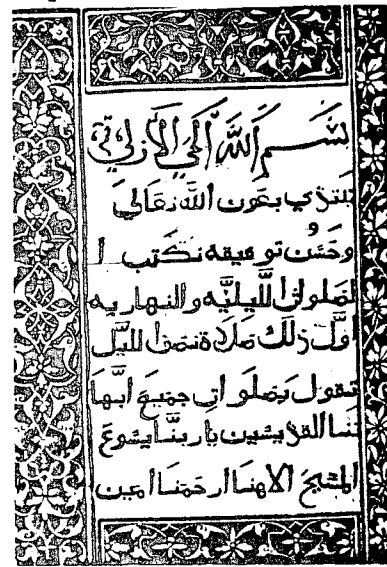 بسم الله الحي الازلي
نبتدي بعون الله تعالي
وحسن توفيقه نكتب ا
لصلواة الليليه والنهاريه
اول ذلك صلاة نصف الليل
تقول بصلواتي جميع ابها
تنا القديسين يا ربنا يشوع
المسيح الاهنا ارحمنا امين